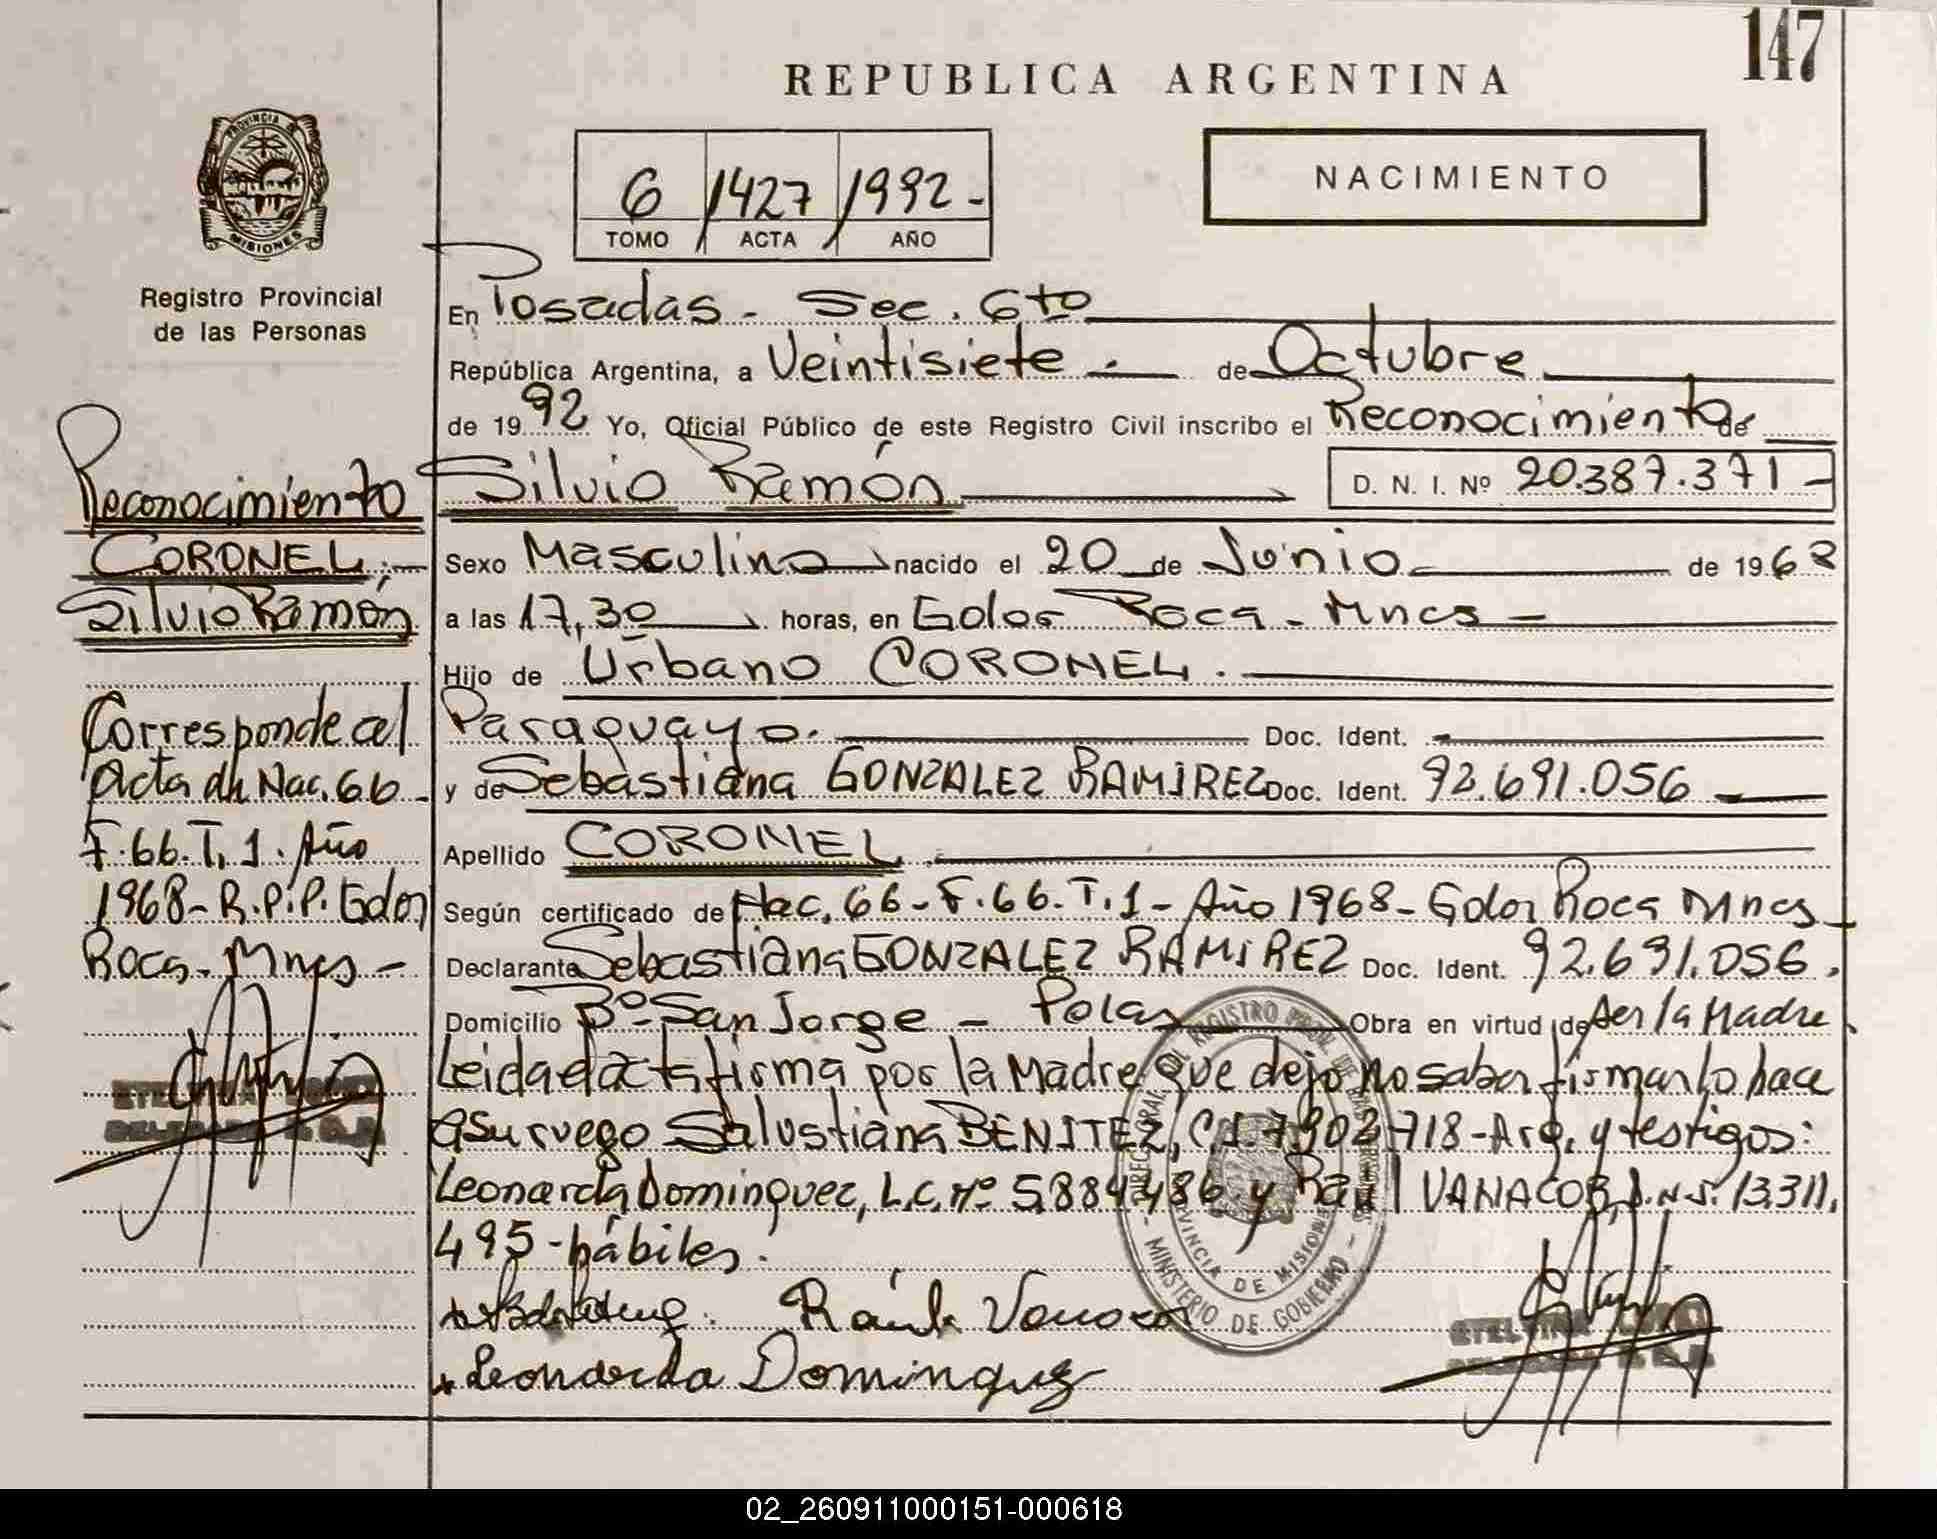 147
REPUBLICA ARGENTINA
NACIMIENTO
6 / 1427 / 1992 -
TOMO / ACTA / AÑO
PROVINCIA DE
MISIONES
Registro Provincial
de las Personas
Reconocimiento
CORONEL;
Silvio Ramón
Corresponde al
Acta de Nac. 66 -
F. 66. T. 1. Año
1968 - R.P.P. Gdor
Roca - Mnes -
En Posadas - Sec. 6to
República Argentina, a Veintisiete - de Octubre
de 1992 Yo, Oficial Público de este Registro Civil inscribo el Reconocimiento de
Silvio Ramón D. N. I. Nº 20.387.371 -
Sexo Masculino nacido el 20 de Junio de 1968
a las 17,30 horas, en Gdor Roca - Mnes -
Hijo de Urbano CORONEL.
Paraguayo. Doc. Ident.
y de Sebastiana GONZALEZ RAMIREZ Doc. Ident. 92.691.056
Apellido CORONEL
Según certificado de Nac. 66 - F. 66. T. 1 - Año 1968 - Gdor Roca Mnes
Declarante Sebastiana GONZALEZ RAMIREZ Doc. Ident. 92.691.056.
Domicilio Bº San Jorge - Pdas Obra en virtud de ser la Madre
Leida el acta firma por la Madre que dejo no saber firmar lo hace
a su ruego Salustiana BENITEZ, C.I. 7902718 - Arg. y testigos:
Leonarda Dominguez, L.C. Nº 5.884.486 y Raul VANACOR, D.N.I. 13.311.
495 - hábiles.
Raúl Vanacor
Leonarda Dominguez
MINISTERIO DE GOBIERNO
PROVINCIA DE MISIONES
02_260911000151-000618